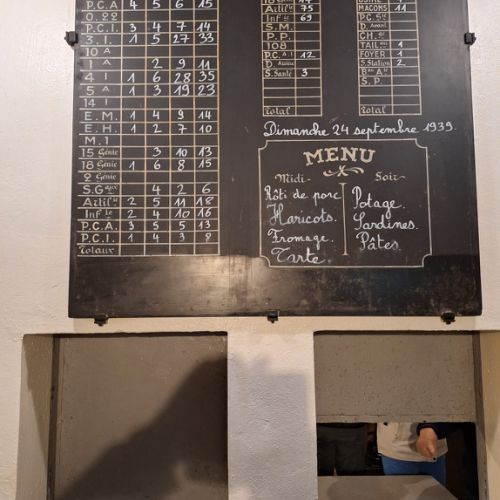 P.C.A 4 5 6 15
O.22
P.C.I. 3 4 7 14
3.I. 1 5 27 33
10 A
1 A 2 9 11
4 I 1 6 28 35
5 A 1 3 19 23
14 I
E.M. 1 4 9 14
E.H. 1 2 7 10
M.I
15 Génie 3 10 13
18 Génie 1 6 8 15
2 Génie
S.G aux 4 2 6
Artil ie 2 5 11 18
Inf ie 2 4 10 16
P.C.A. 3 5 5 13
P.C.I. 1 4 3 8
Totaux
Artil ie 75
Inf ie 69
S.M.
P.P.
108
P.C.A.I 12
S. Santé 3
Total
MAÇONS 11
P.C. St
D. Avant
CH. St
TAIL 1
FOYER 1
S. Station 2
S.P.
Total
Dimanche 24 septembre 1939.
MENU
Midi Soir
Rôti de porc
Haricots.
Fromage.
Tarte.
Potage.
Sardines.
Pâtes.